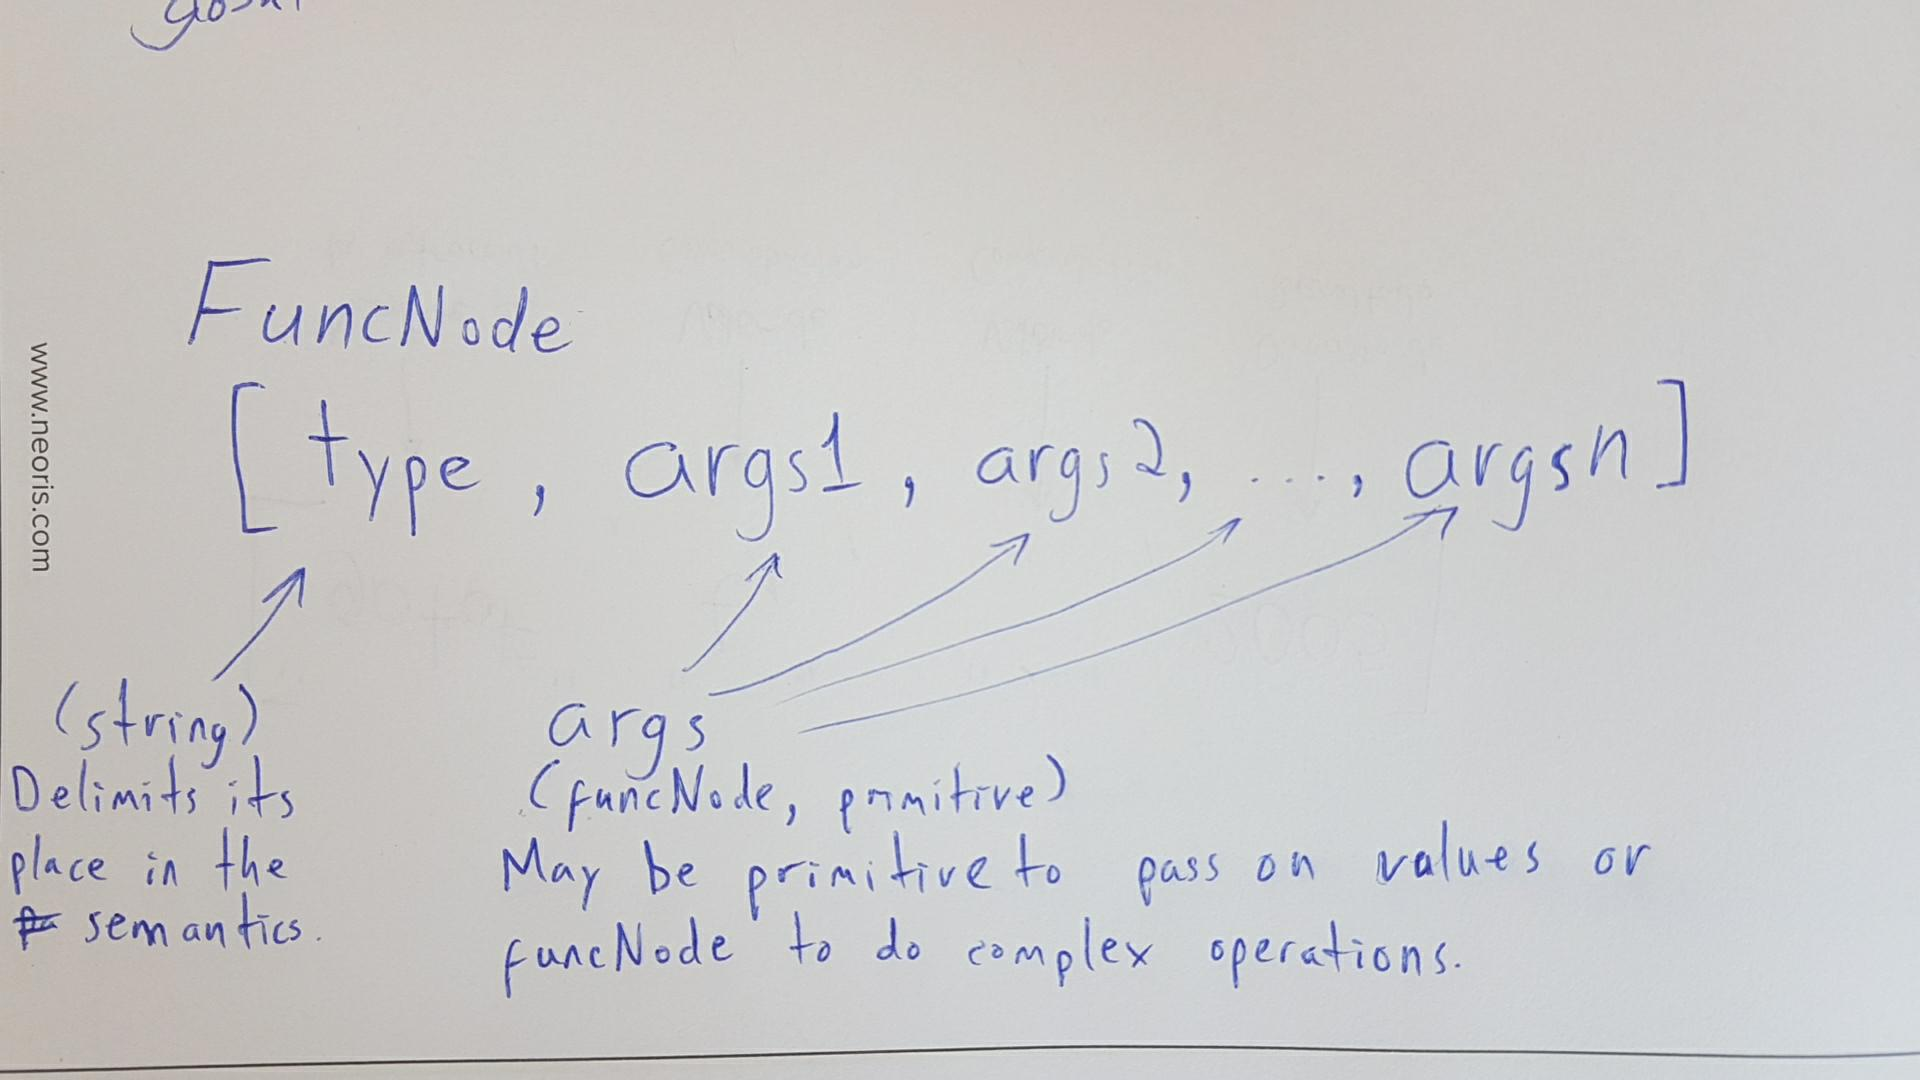 FuncNode
[ type , args1 , args2, ..., argsn ]
(string)
Delimits its
place in the
semantics.
args
(funcNode, primitive)
May be primitive to pass on values or
funcNode to do complex operations.
www.neoris.com